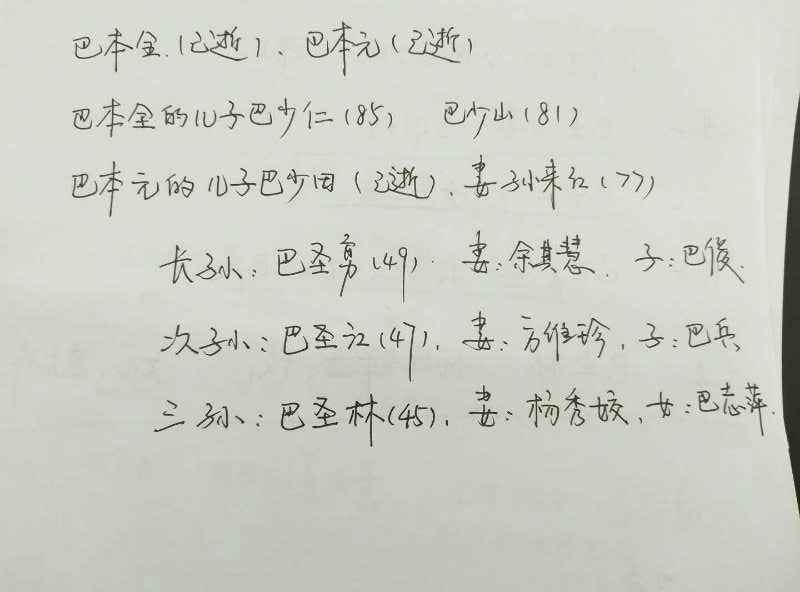 巴本全(已逝)、巴本元(已逝)
巴本全的儿子巴少仁(85) 巴少山(81)
巴本元的儿子巴少田(已逝)、妻孙来红(77)
长孙:巴圣勇(49) 妻:余其慧、子:巴俊、
次孙:巴圣江(47)、妻:方维珍、子:巴兵
三孙:巴圣林(45)、妻:杨秀姣、女:巴志萍、